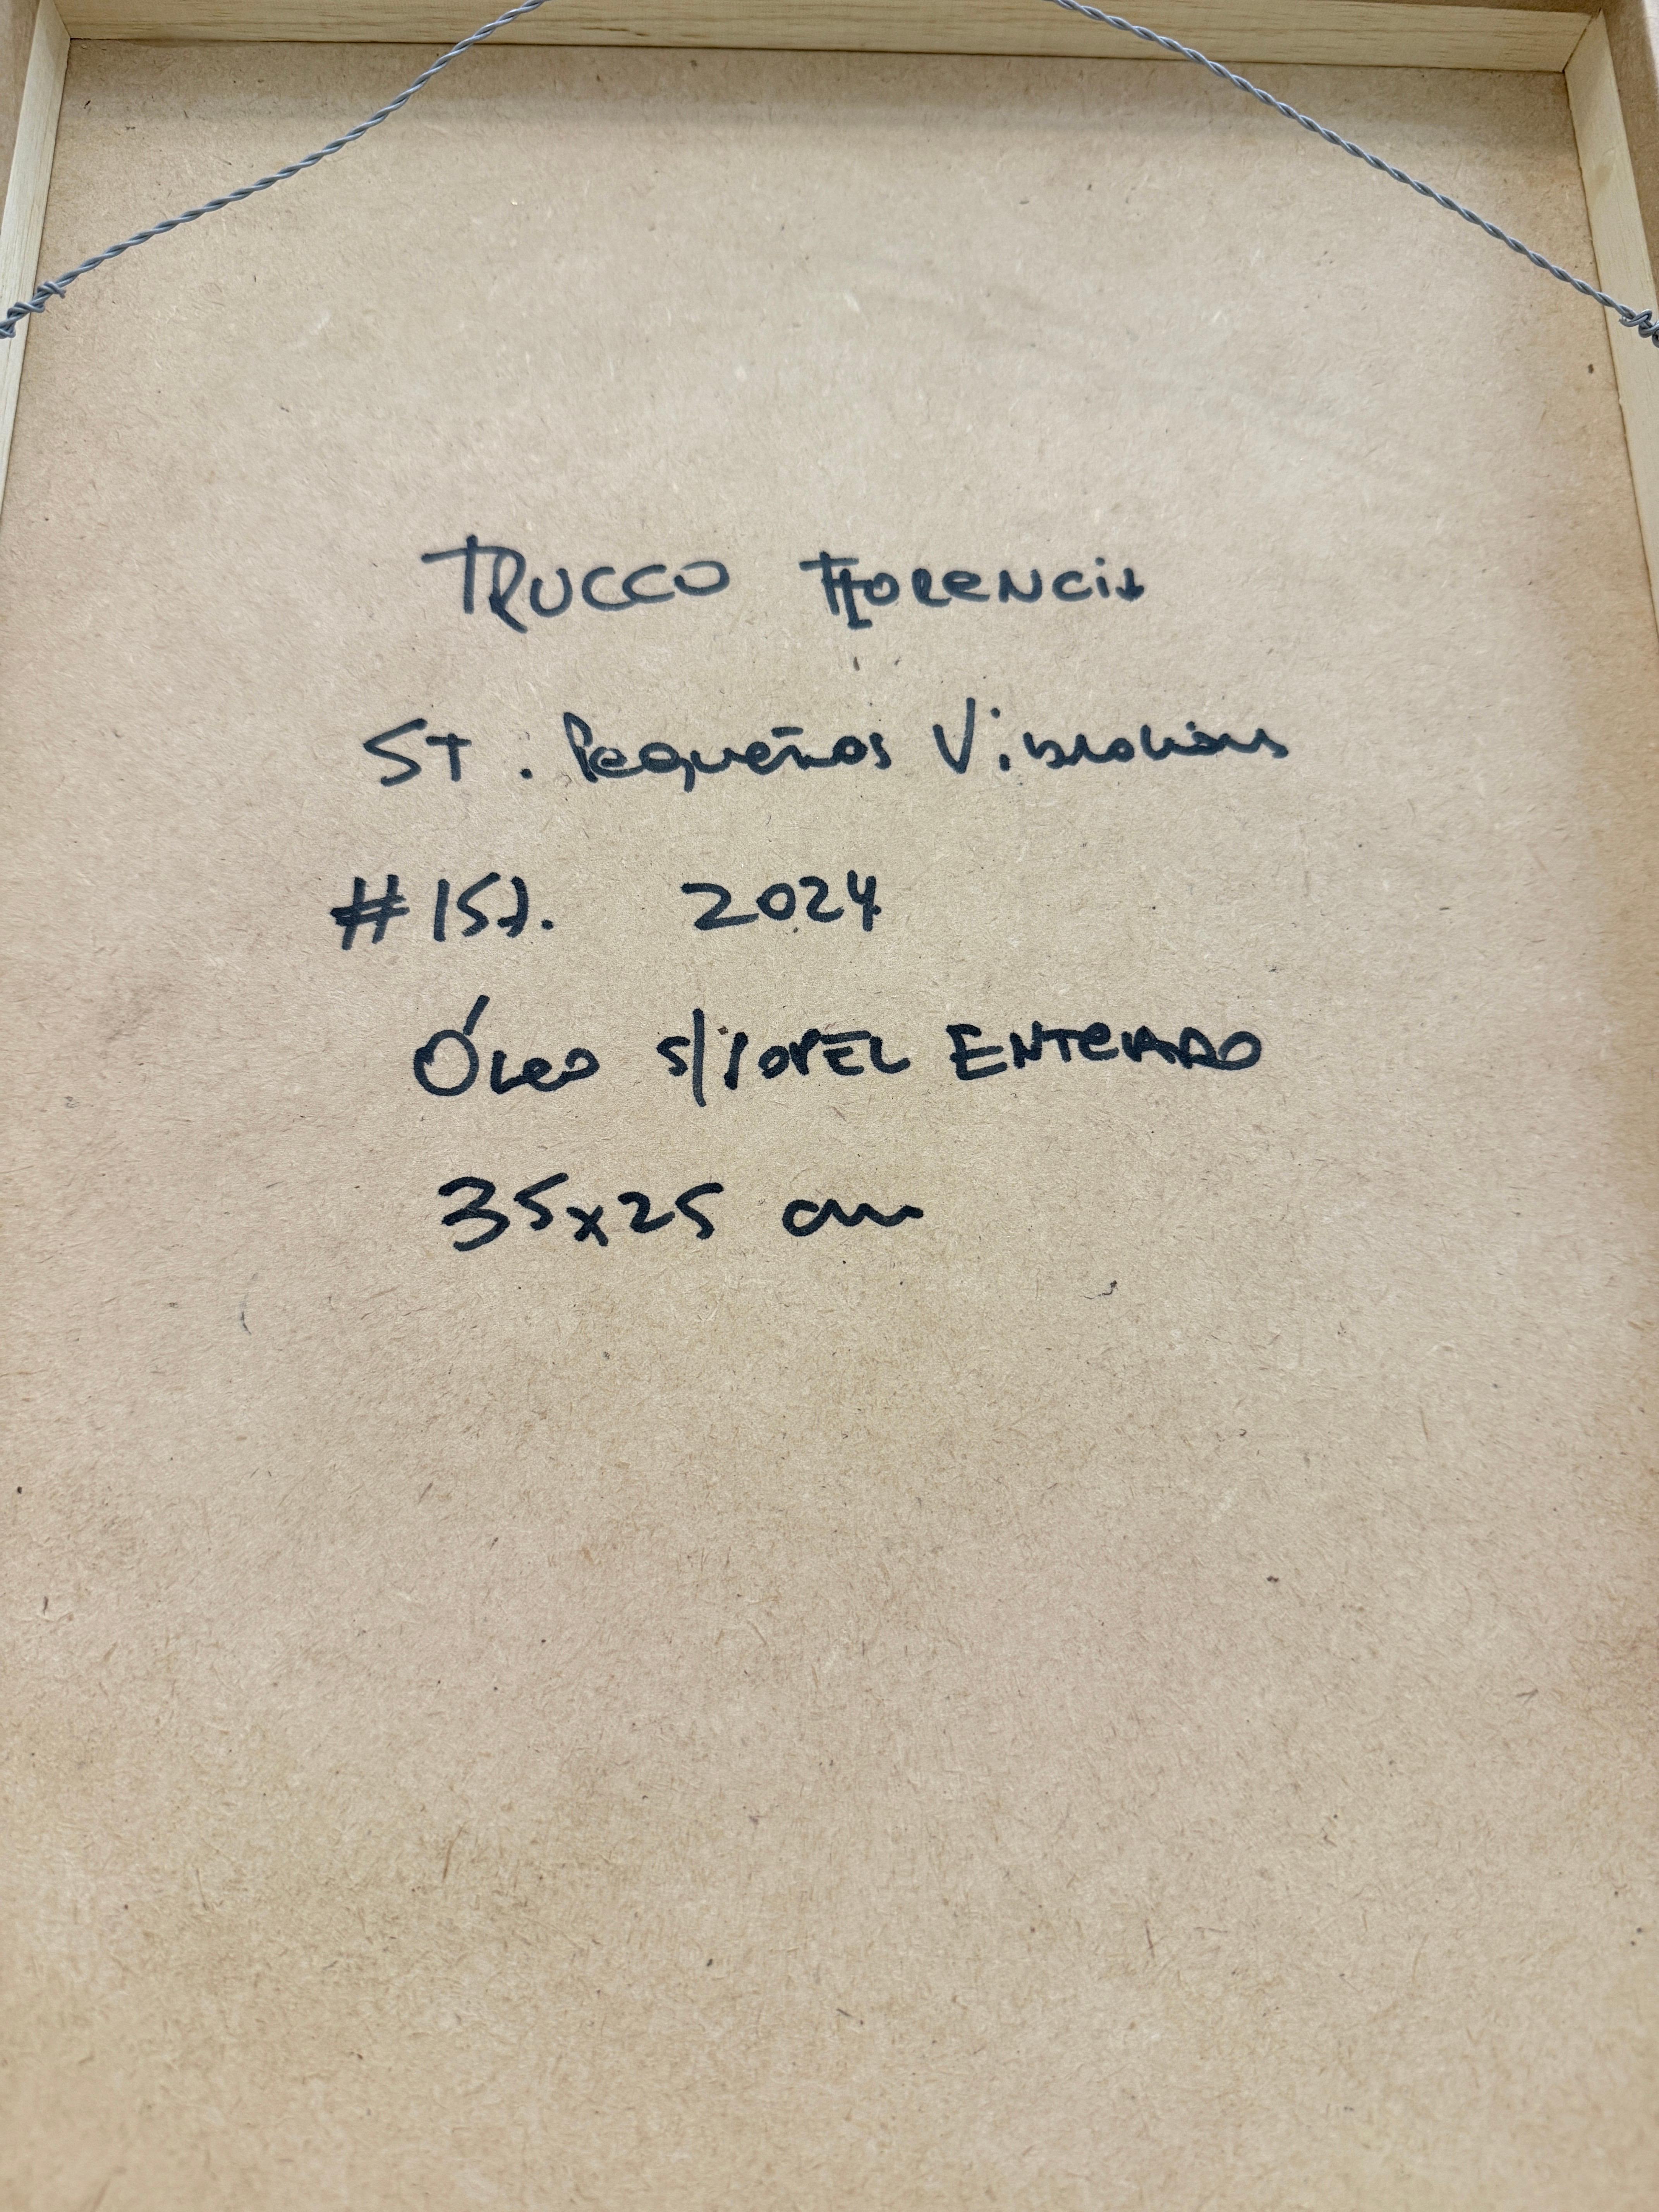 TRUCCO FlORENCiA
ST. Pequeñas Vibraciones
#157. 2024
ÓLeo s/PAPEL ENTELADO
35x25 cm